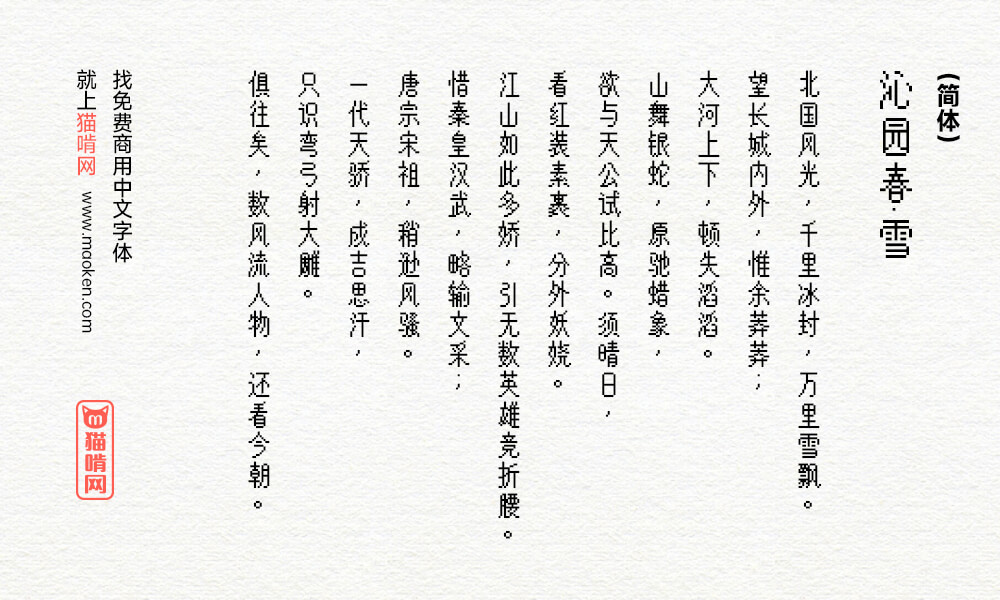 (简体)
沁园春·雪
北国风光，千里冰封，万里雪飘。
望长城内外，惟余莽莽；
大河上下，顿失滔滔。
山舞银蛇，原驰蜡象，
欲与天公试比高。须晴日，
看红装素裹，分外妖娆。
江山如此多娇，引无数英雄竞折腰。
惜秦皇汉武，略输文采；
唐宗宋祖，稍逊风骚。
一代天骄，成吉思汗，
只识弯弓射大雕。
俱往矣，数风流人物，还看今朝。
找免费商用中文字体
就上猫啃网 www.maoken.com
猫啃网